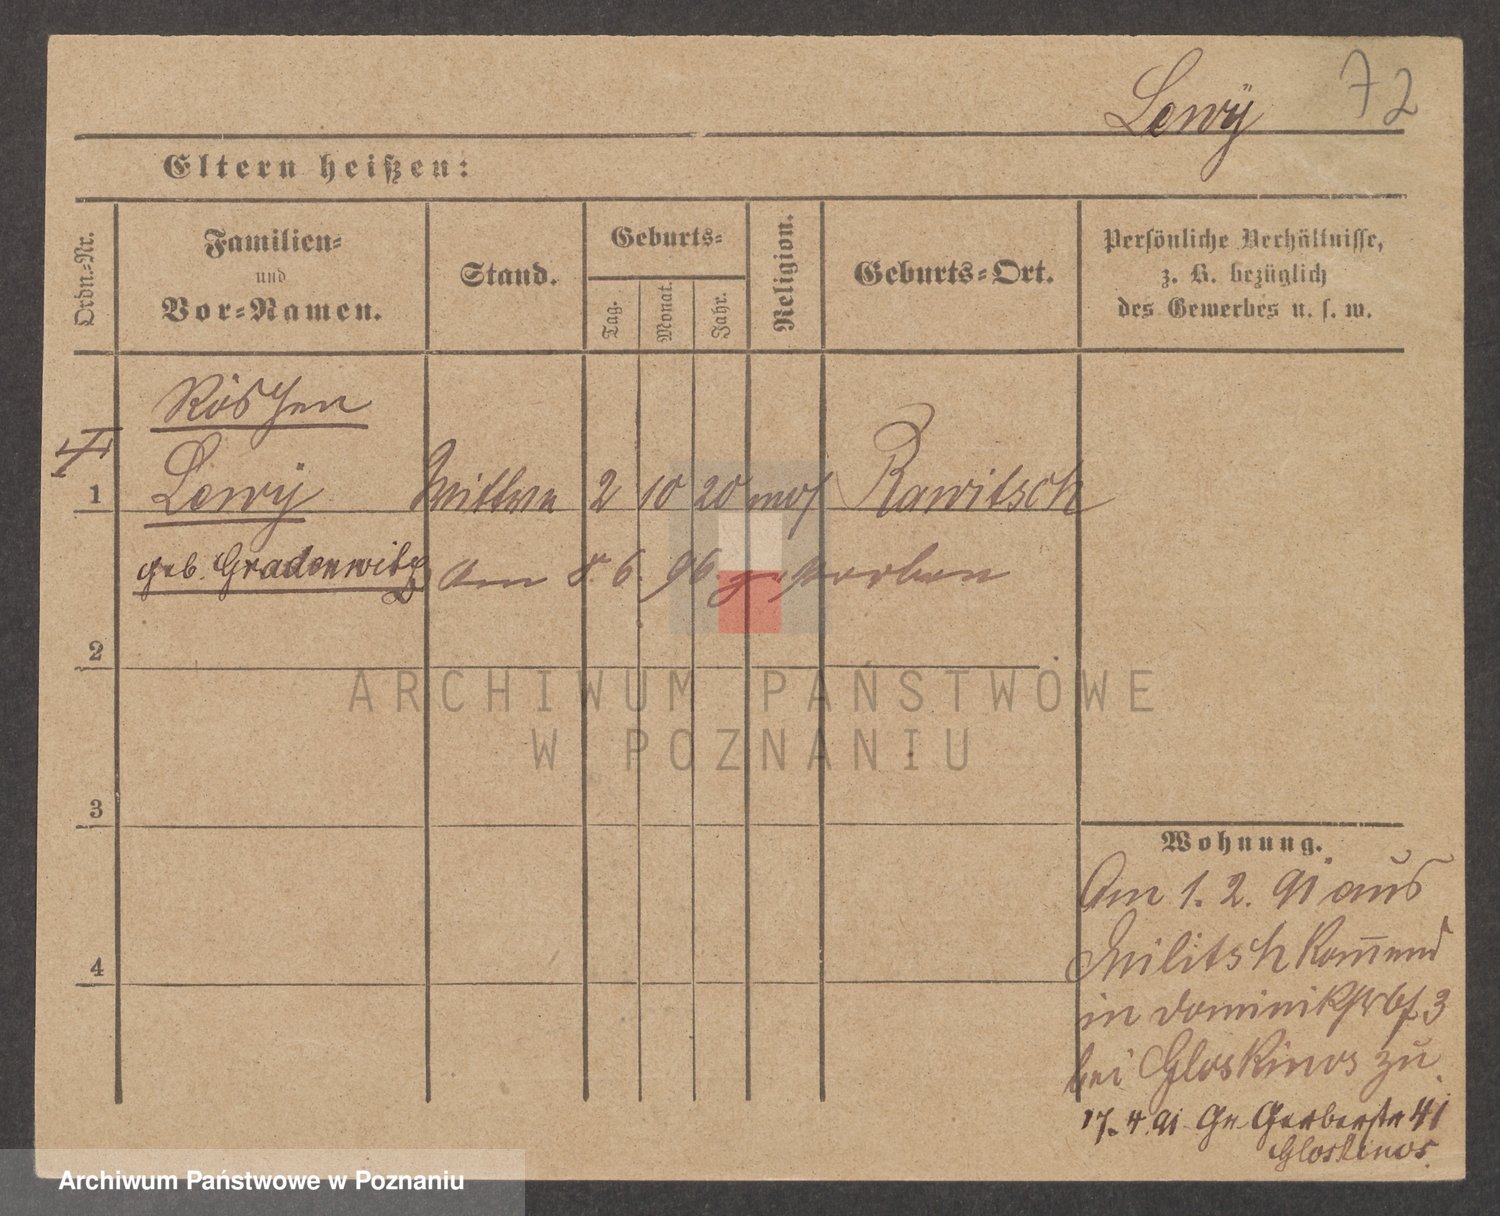 72
Lewÿ
Eltern heißen:
Ordn=Nr.
Familien=
und
Vor=Namen.
Stand.
Geburts=
Tag.
Monat.
Jahr.
Religion.
Geburts=Ort.
Persönliche Verhältnisse,
z. B. bezüglich
des Gewerbes u. s. w.
Röschen
1 Lewÿ Wittwe 2 10 20 mos Rawitsch
geb. Gradenwitz am 8. 6. 96. gestorben
2
3
4
Wohnung.
Am 1. 2. 91 aus
Militsch kom̅end
in Dominikstr 3
bei Gloskinos zu
17. 4. 91 Gr Gerberstr 41
Gloskinos.
ARCHIWUM PAŃSTWOWE
W POZNANIU
Archiwum Państwowe w Poznaniu